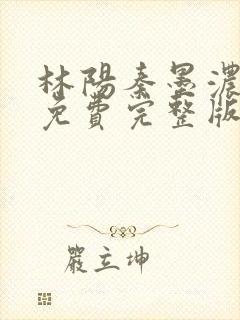 林陽秦墨濃
免費完整版
嚴立坤